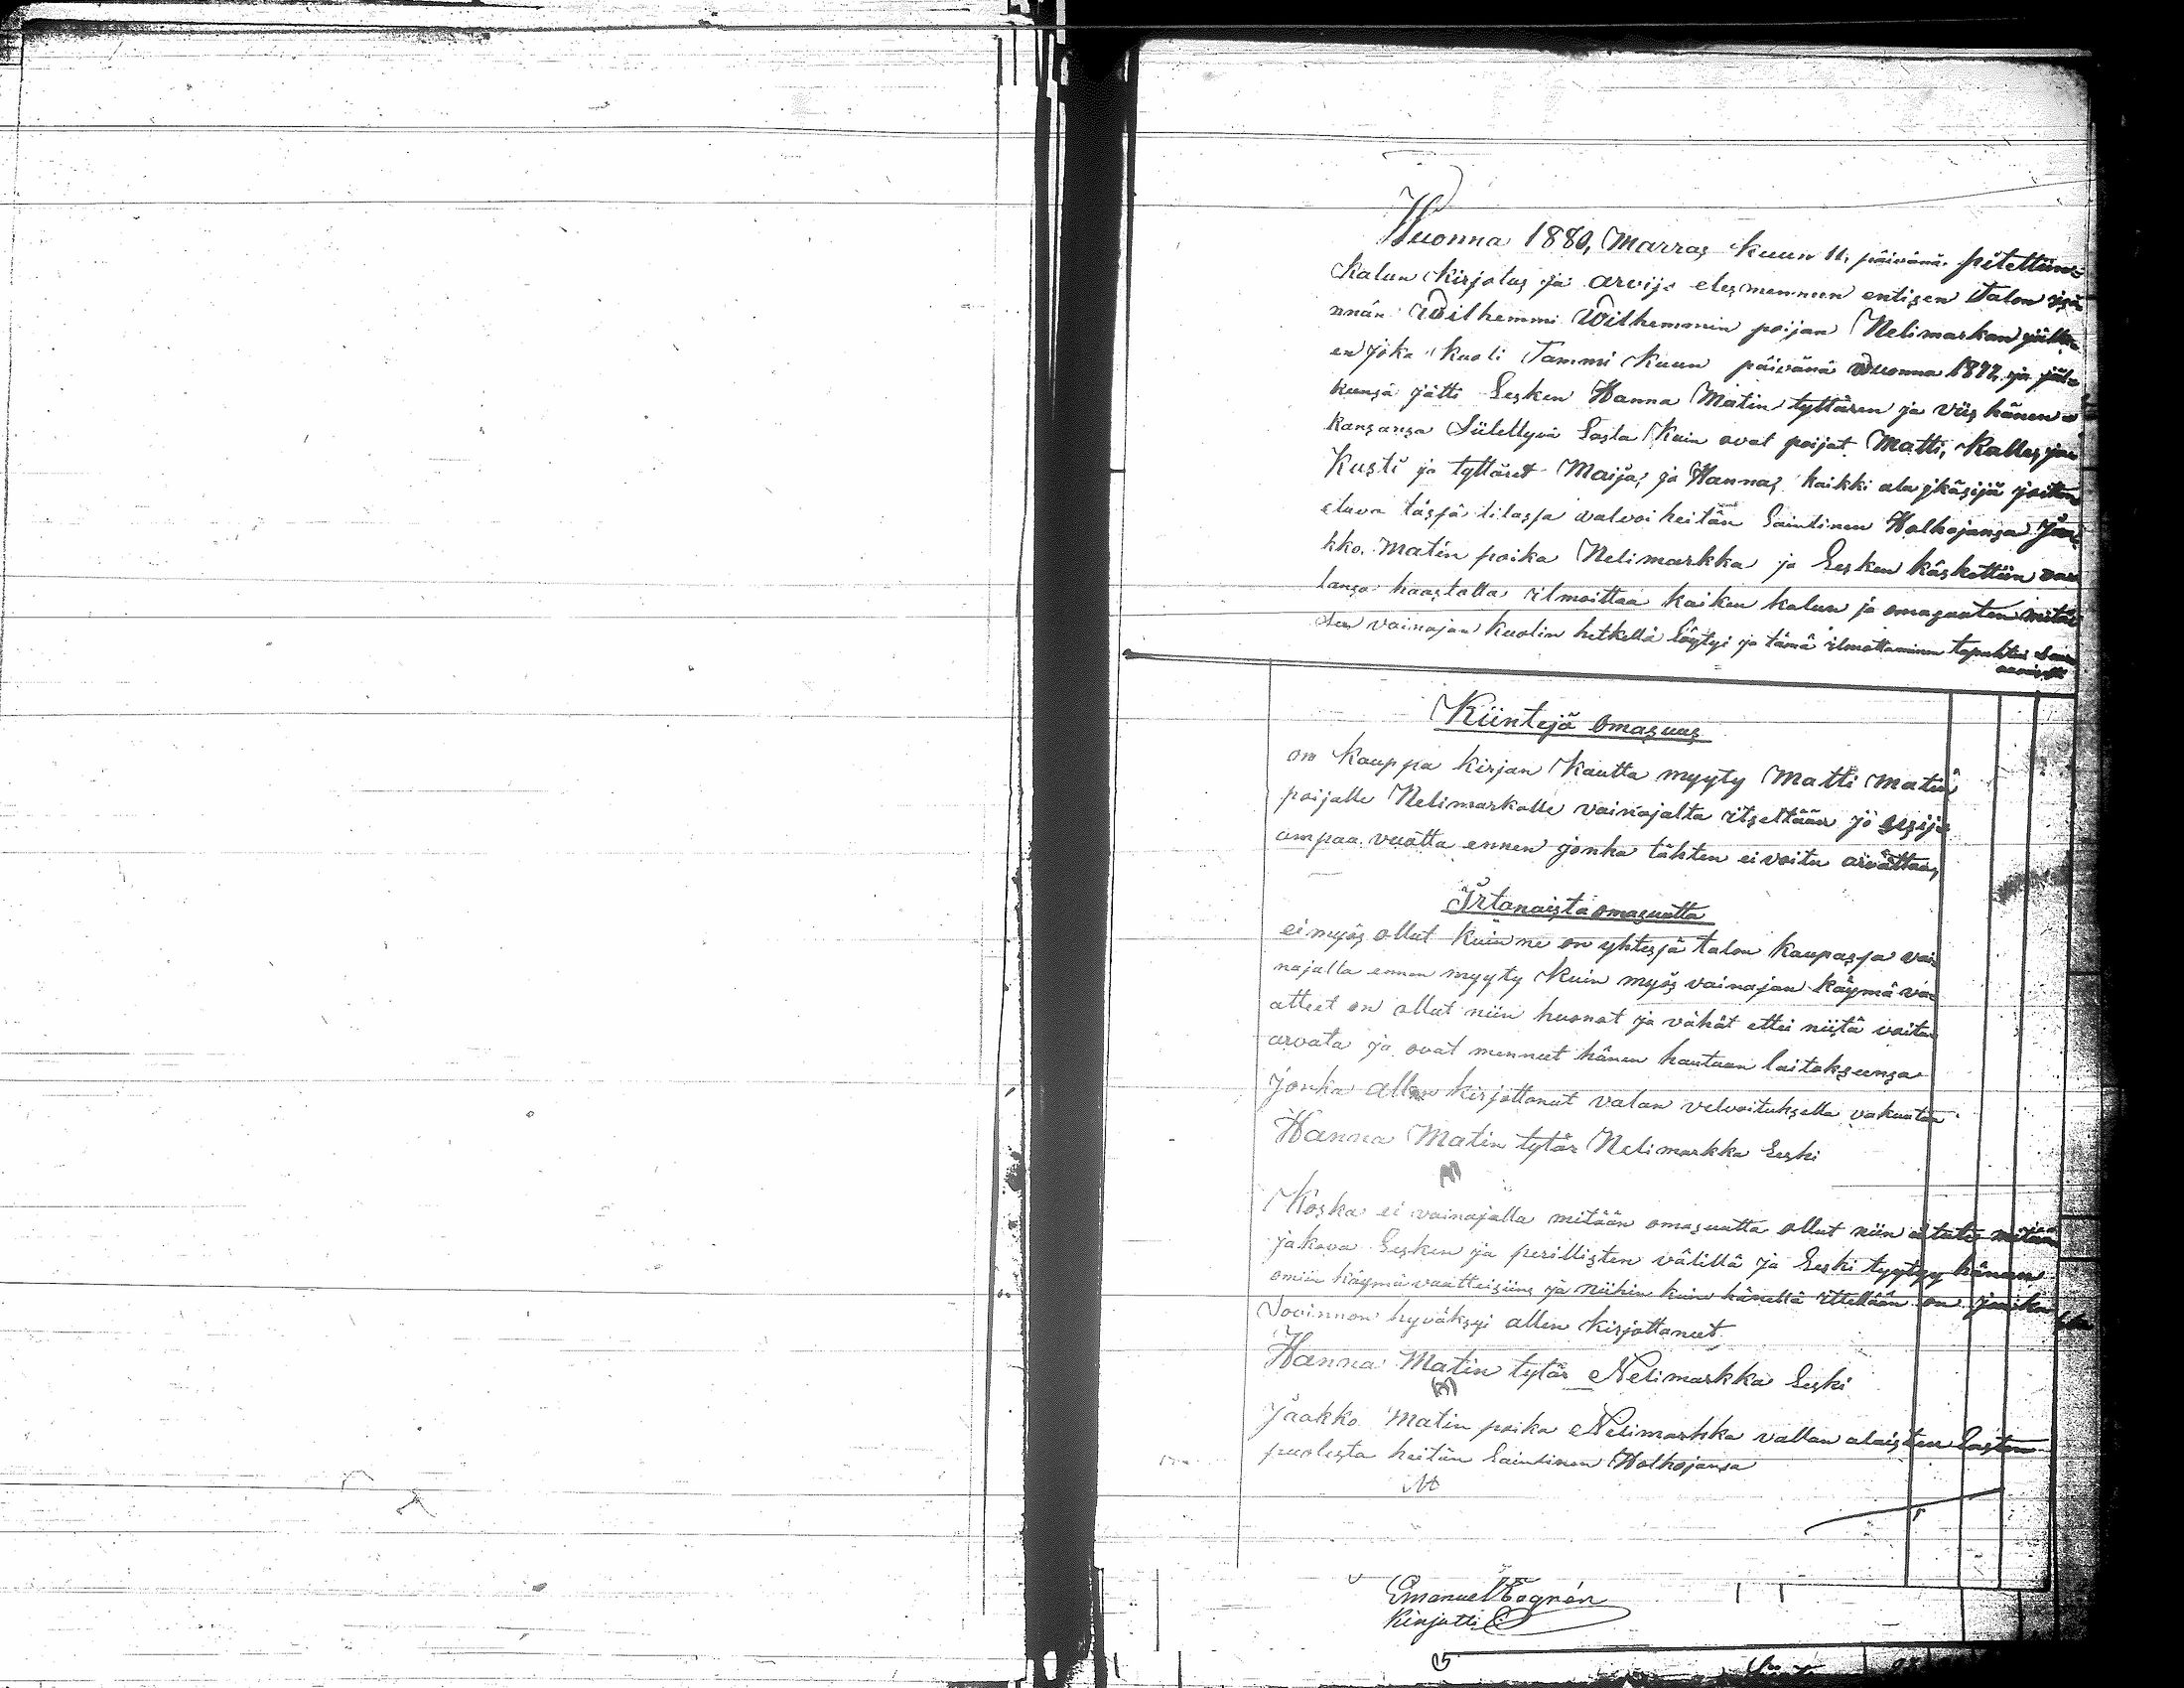 Wuonna 1880, Marras kuun 11, päivänä pitettiin
kalun kirjotus ja arvijo edesmennen entisen Talon isä
nnän Wilhemmi Wilhemmin poijan Nelimarkan jälke
en joka kuoli Tammi kuun päivänä Wuonna 1877, ja jäl
keensä jätti Lesken Hanna Matin tyttären ja viis hänen
kansansa Siitettyä Lasta kuin ovat poijat Matti, Kalles, ja
Kusti ja tyttäret Maijas ja Hannas kaikki ala jkäsijä joitten
etuva tässä tilassa valvoi heitän Laintinen Holhojansa Jaa
kko Matin poika Nelimarkka ja Lesken käskettiin va
lansa haastolla ilmoittaa kaiken kalun ja omasuuten mitä
sen vainajan kuolin hetkellä Löytyi ja tämä ilmottaminen tapahtui
Kiintejä omasuus
on kauppa kirjan kautta myyty Matti Matin
poijalle Nelimarkalle vainajalta itseltään jo
ampaa vuotta ennen jonka tähten ei voitu arvattaa,
Irtanaista omasuutta
ei myös ollut kuin ne on yhtessä talon kaupassa vai
najalta ennen myyty kuin myös vainajan käymä va
atteet on ollut niin huonot ja vähät ettei niitä voitu
arvata ja ovat mennet hänen hautaan laitokseensa
Jonka allen kirjottanut valan velvoituksella vakuutan
Hanna Matin tytär Nelimarkka Leski
Koska ei vainajalla mitään omasuutta ollut niin ei tule mitään
jakoa Lesken ja perillisten välillä ja Leski tyytyy hänen
omiin käymävaatteisiins ja niihin kuin hänellä ittellään on
Sovinnon hyväksyi allen kirjottanut
Hanna Matin tytär Nelimarkka Leski
Jaakko Matin poika Nelimarkka vallan alaisten Lasten
puolesta heitän Laintinen Holhojansa
Emanuel
Kirjotti